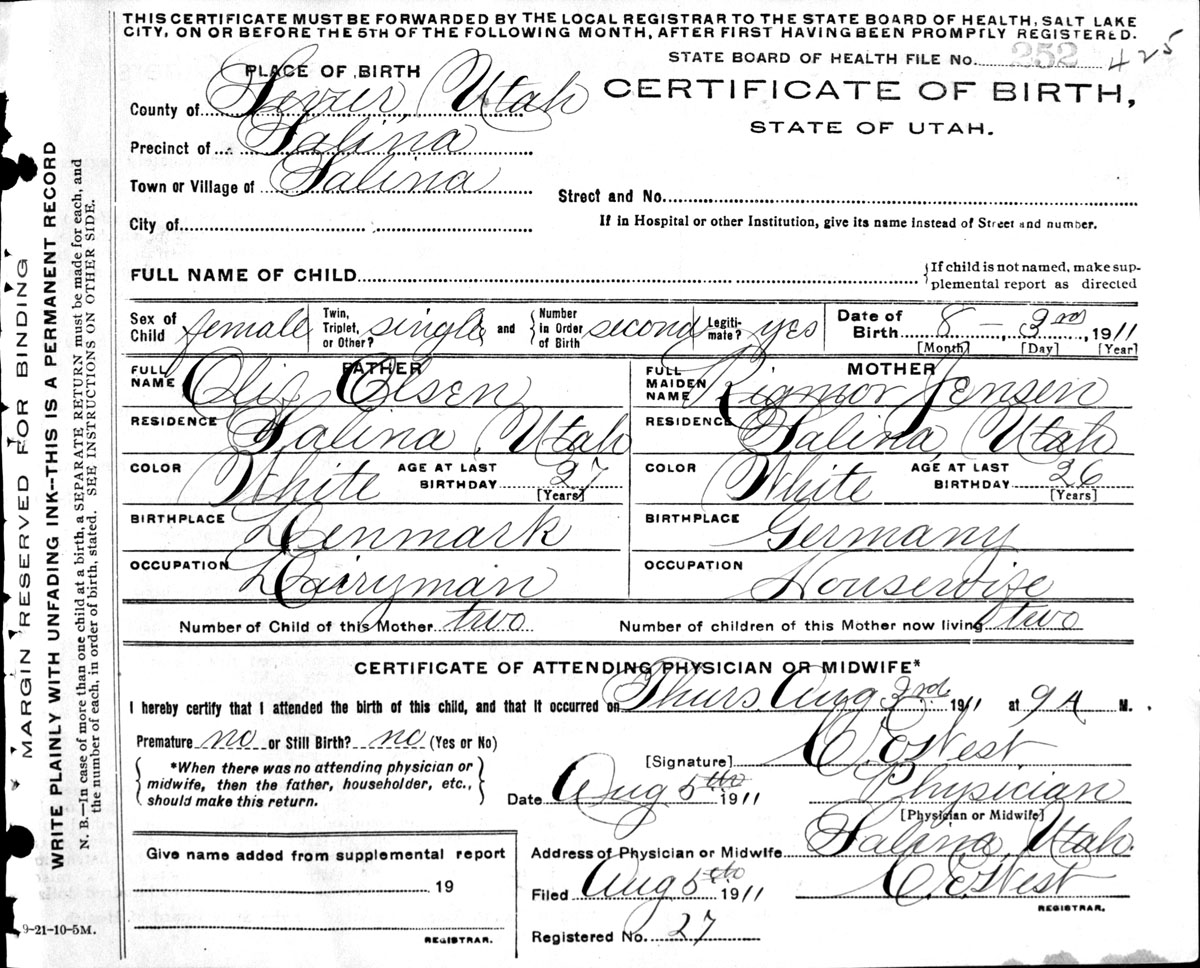 THIS CERTIFICATE MUST BE FORWARDED BY THE LOCAL REGISTRAR TO THE STATE BOARD OF HEALTH, SALT LAKE
CITY, ON OR BEFORE THE 5TH OF THE FOLLOWING MONTH, AFTER FIRST HAVING BEEN PROMPTLY REGISTERED.
STATE BOARD OF HEALTH FILE No. 252 425
PLACE OF BIRTH
CERTIFICATE OF BIRTH,
STATE OF UTAH.
County of Sevier, Utah
Precinct of Salina
Town or Village of Salina
Street and No.
City of
If in Hospital or other Institution, give its name instead of Street and number.
FULL NAME OF CHILD
{If child is not named, make sup-
plemental report as directed
Sex of Child female Twin, Triplet, or Other? single and {Number in Order of Birth second Legiti-mate? yes Date of Birth 8 - 3rd, 1911
[Month] [Day] [Year]
FATHER MOTHER
FULL NAME Olif Olsen FULL MAIDEN NAME Rigmor Jensen
RESIDENCE Salina, Utah RESIDENCE Salina, Utah
COLOR White AGE AT LAST BIRTHDAY 27 [Years] COLOR White AGE AT LAST BIRTHDAY 26 [Years]
BIRTHPLACE Denmark BIRTHPLACE Germany
OCCUPATION Dairyman OCCUPATION Housewife
Number of Child of this Mother two Number of children of this Mother now living two
CERTIFICATE OF ATTENDING PHYSICIAN OR MIDWIFE*
I hereby certify that I attended the birth of this child, and that it occurred on Thurs. Aug 3rd 1911 at 9 A M.
Premature no or Still Birth? no (Yes or No)
[Signature] C. E. West
*When there was no attending physician or
midwife, then the father, householder, etc.,
should make this return.
Date Aug 5th 1911 Physician
[Physician or Midwife]
Give name added from supplemental report
19
REGISTRAR.
Address of Physician or Midwife Salina, Utah.
Filed Aug 5th 1911 C. E. West
REGISTRAR.
Registered No. 27
9-21-10-5M.
MARGIN RESERVED FOR BINDING
WRITE PLAINLY WITH UNFADING INK--THIS IS A PERMANENT RECORD
N. B.—In case of more than one child at a birth, a SEPARATE RETURN must be made for each, and
the number of each, in order of birth, stated. SEE INSTRUCTIONS ON OTHER SIDE.